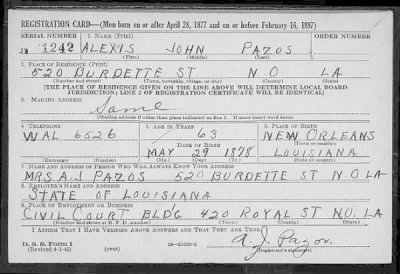 REGISTRATION CARD—(Men born on or after April 28, 1877 and on or before February 16, 1897)
SERIAL NUMBER 1. NAME (Print) ORDER NUMBER
1242 ALEXIS JOHN PAZOS
(First) (Middle) (Last)
2. PLACE OF RESIDENCE (Print)
520 BURDETTE ST N.O. LA
(Number and street) (Town, township, village, or city) (County) (State)
[THE PLACE OF RESIDENCE GIVEN ON THE LINE ABOVE WILL DETERMINE LOCAL BOARD
JURISDICTION; LINE 2 OF REGISTRATION CERTIFICATE WILL BE IDENTICAL]
3. MAILING ADDRESS
Same
[Mailing address if other than place indicated on line 2. If same insert word same]
4. TELEPHONE 5. AGE IN YEARS 6. PLACE OF BIRTH
WAL 6526 63 NEW ORLEANS
DATE OF BIRTH (Town or county)
MAY 29 1878 LOUISIANA
(Exchange) (Number) (Mo.) (Day) (Yr.) (State or country)
7. NAME AND ADDRESS OF PERSON WHO WILL ALWAYS KNOW YOUR ADDRESS
MRS A.J. PAZOS 520 BURDETTE ST N.O LA
8. EMPLOYER'S NAME AND ADDRESS
STATE OF LOUISIANA
9. PLACE OF EMPLOYMENT OR BUSINESS
CIVIL COURT BLD'G 420 ROYAL ST N.O. LA
(Number and street or R. F. D. number) (Town) (County) (State)
I AFFIRM THAT I HAVE VERIFIED ABOVE ANSWERS AND THAT THEY ARE TRUE.
D. S. S. Form 1 A. J. Pazos
(Revised 4-1-42) (over) (Registrant's signature)